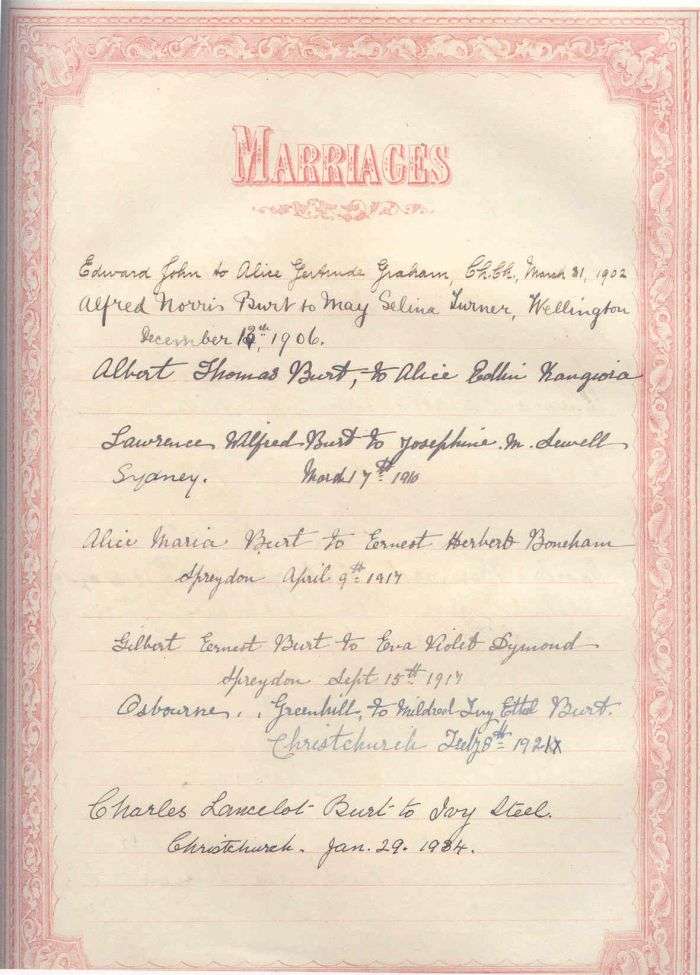 MARRIAGES
Edward John to Alice Gertrude Graham, Ch.Ch, March 31, 1902
Alfred Norris Burt to May Selina Turner, Wellington
December 12th, 1906.
Albert Thomas Burt, to Alice Edlin Rangiora
Lawrence Wilfred Burt to Josephine. M. Sewell
Sydney. March 17th 1910
Alice Maria Burt to Ernest Herbert Boneham
Spreydon April 9th 1917
Gilbert Ernest Burt to Eva Violet Dymond
Spreydon Sept 15th 1917
Osbourne. . Greenhill, to Mildred Ivy Ethel Burt.
Christchurch July 8th 1921
Charles Lancelot Burt to Ivy Steel.
Christchurch. Jan. 29. 1934.